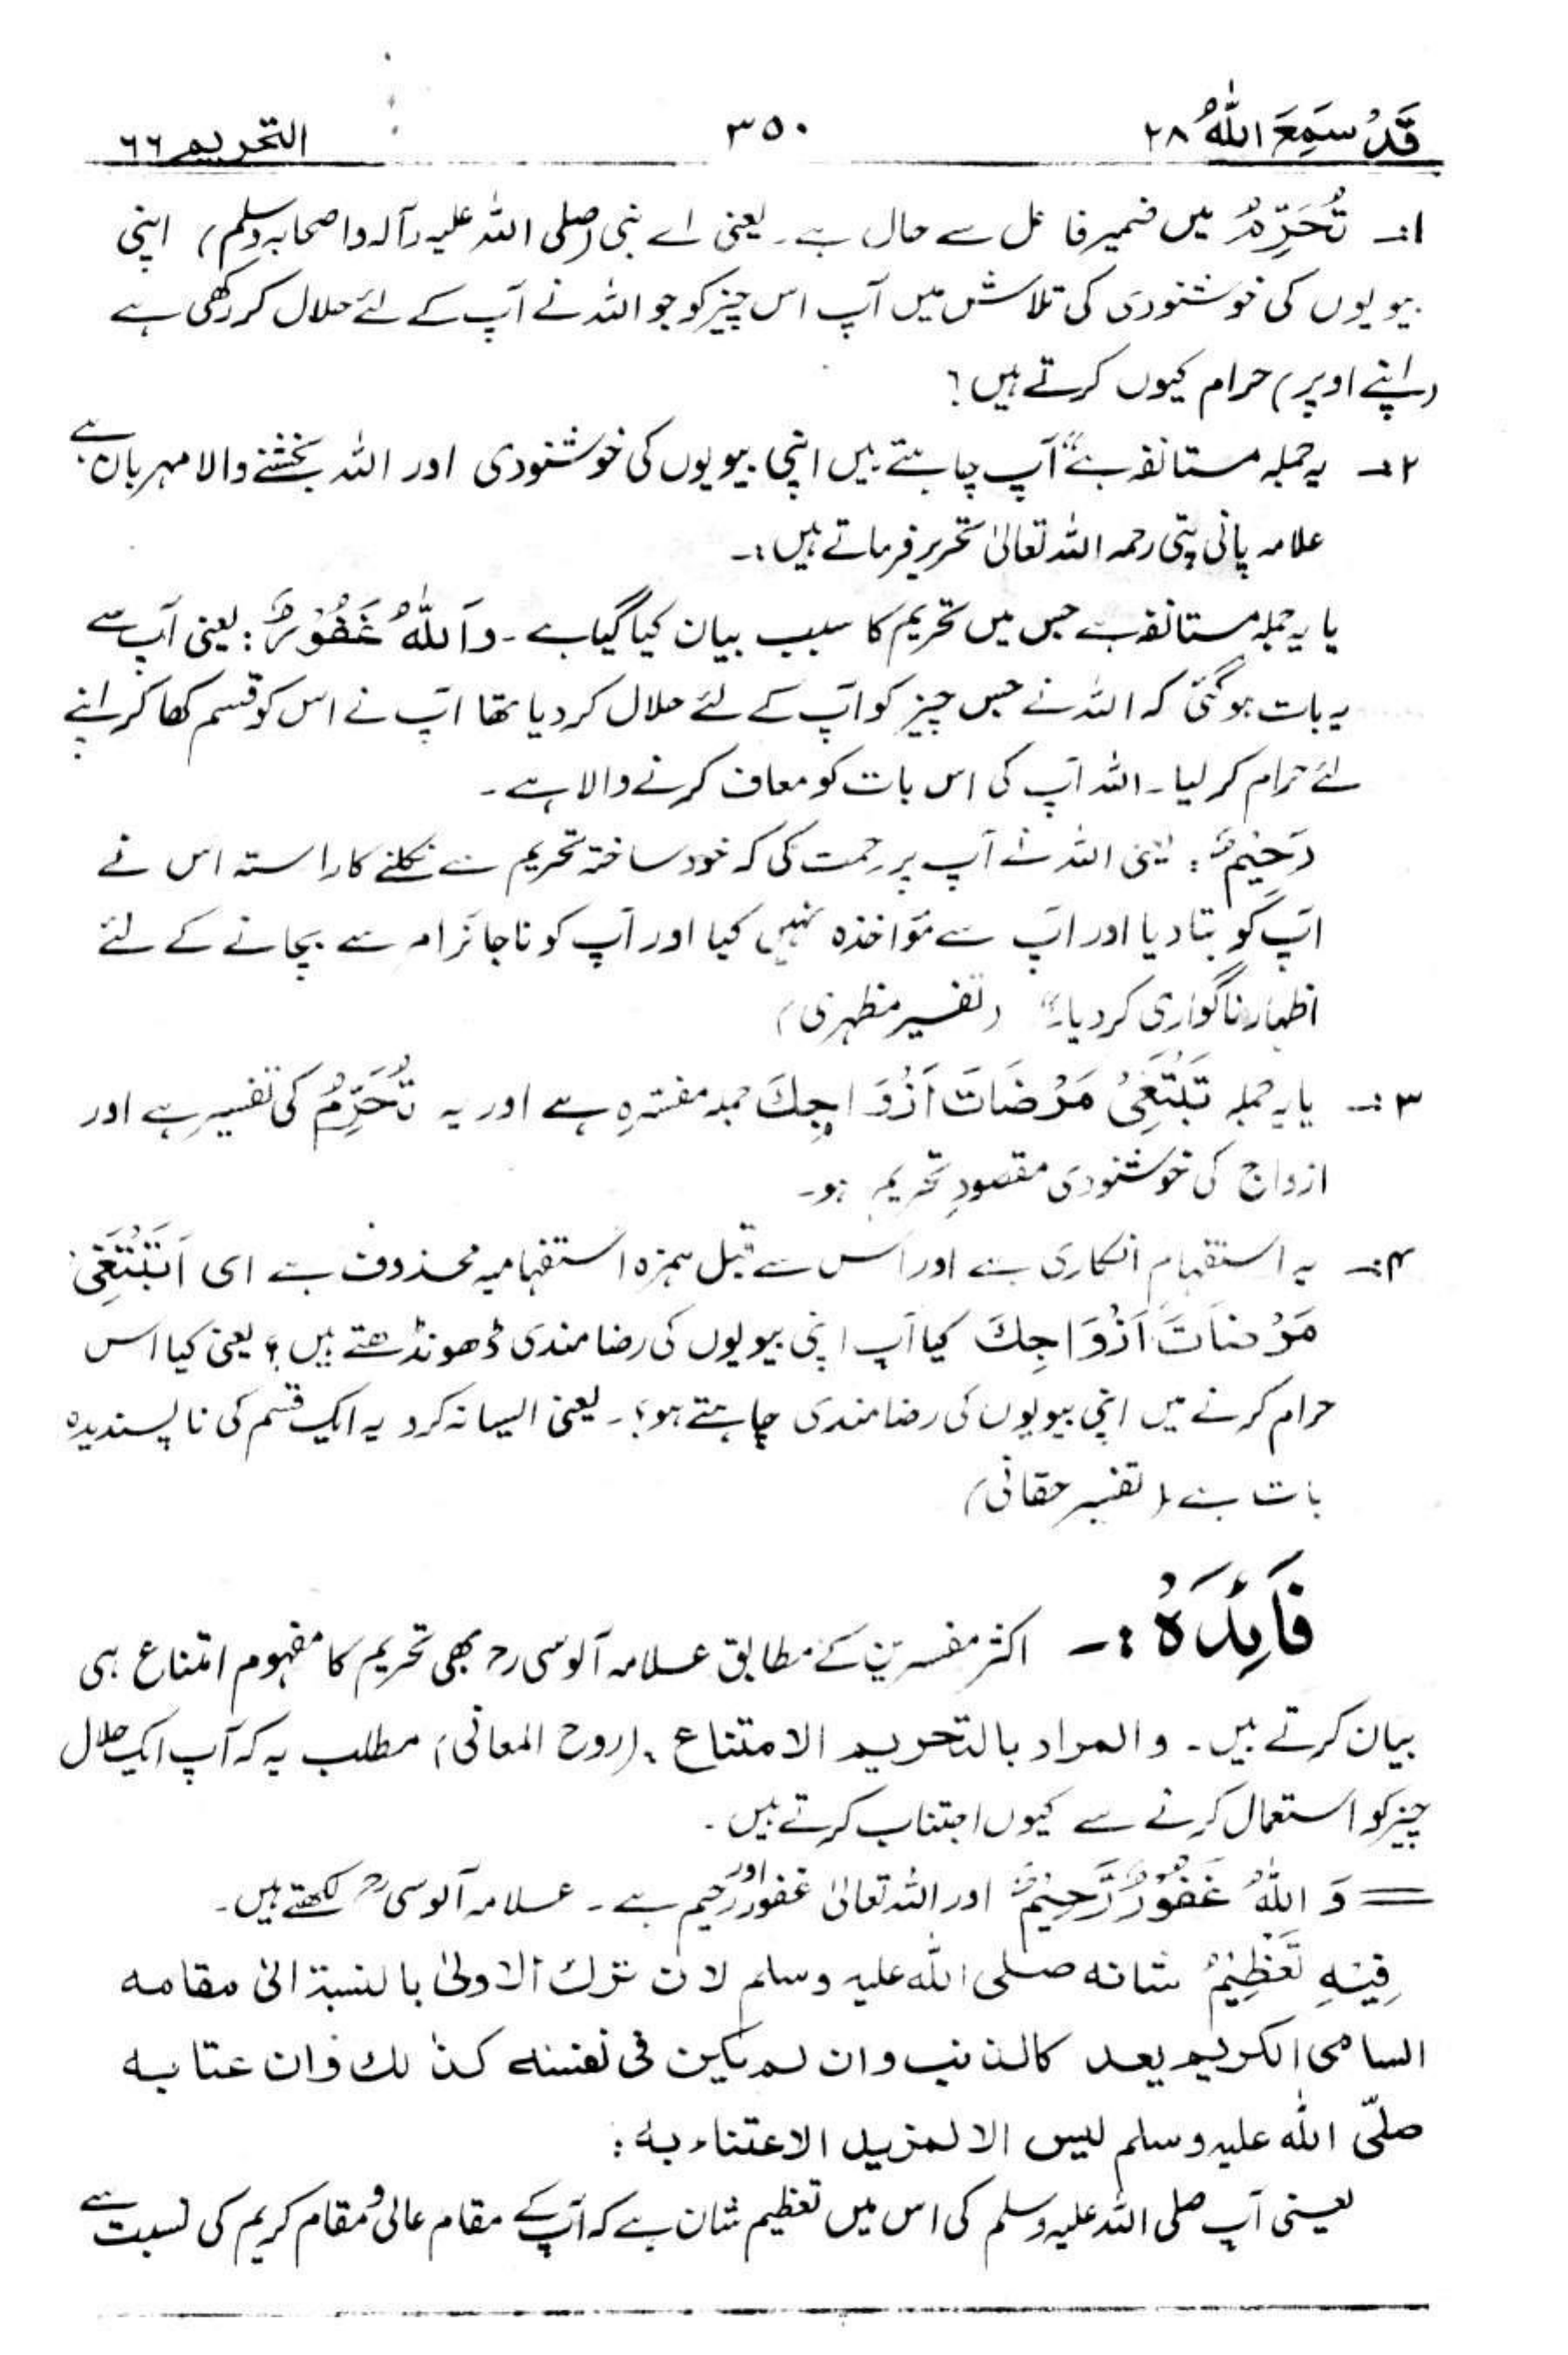 قَدْ سَمِعَ اللّٰهُ ۲۸ ۳۵۰ التحریم ۶۶
۱:۔ تُحَرِّمُ میں ضمیر فاعل سے حال ہے۔ یعنی اے نبی (صلی اللہ علیہ وآلہ واصحابہ وسلم) اپنی
بیویوں کی خوشنودی کی تلاش میں آپ اس چیز کو جو اللہ نے آپ کے لئے حلال کر رکھی ہے
(اپنے اوپر) حرام کیوں کرتے ہیں؟
۲:۔ یہ جملہ مستانفہ ہے "آپ چاہتے ہیں اپنی بیویوں کی خوشنودی اور اللہ بخشنے والا مہربان ہے
علامہ پانی پتی رحمہ اللہ تعالیٰ تحریر فرماتے ہیں:۔
یا یہ جملہ مستانفہ ہے جس میں تحریم کا سبب بیان کیا گیا ہے۔ وَاللّٰهُ غَفُوْرٌ: یعنی آپ سے
یہ بات ہو گئی کہ اللہ نے جس چیز کو آپ کے لئے حلال کر دیا تھا آپ نے اس کو قسم کھا کر اپنے
لئے حرام کر لیا۔ اللہ آپ کی اس بات کو معاف کرنے والا ہے۔
رَحِیْمٌ: یعنی اللہ نے آپ پر رحمت کی کہ خود ساختہ تحریم سے نکلنے کا راستہ اس نے
آپ کو بتا دیا اور آپ سے مؤاخذہ نہیں کیا اور آپ کو ناجائز امر سے بچانے کے لئے
اظہار ناگواری کر دیا۔" (تفسیر مظہری)
۳:۔ یا یہ جملہ تَبْتَغِیْ مَرْضَاتَ اَزْوَاجِكَ جملہ مفسّرہ ہے اور یہ تُحَرِّمُ کی تفسیر ہے اور
ازواج کی خوشنودی مقصودِ تحریم ہو۔
۴:۔ یہ استفہام انکاری ہے اور اس سے قبل ہمزہ استفہامیہ محذوف ہے ای اَتَبْتَغِیْ
مَرْضَاتَ اَزْوَاجِكَ کیا آپ اپنی بیویوں کی رضامندی ڈھونڈھتے ہیں؟ یعنی کیا اس
حرام کرنے میں اپنی بیویوں کی رضامندی چاہتے ہو؟۔ یعنی ایسا نہ کرو یہ ایک قسم کی ناپسندیدہ
بات ہے (تفسیر حقانی)
فَائِدَہْ:۔ اکثر مفسرین کے مطابق علامہ آلوسی رح بھی تحریم کا مفہوم امتناع ہی
بیان کرتے ہیں۔ والمراد بالتحریم الامتناع۔ (روح المعانی) مطلب یہ کہ آپ ایک حلال
چیز کو استعمال کرنے سے کیوں اجتناب کرتے ہیں۔
= وَاللّٰهُ غَفُوْرٌ رَّحِیْمٌ اور اللہ تعالیٰ غفور اور رحیم ہے۔ علامہ آلوسی رح لکھتے ہیں۔
فِیْهِ تَعْظِیْمُ شانه صلی اللّٰہ علیہ وسلم لان ترك الاولیٰ بالنسبة الیٰ مقامه
السامی الکریم یعد کالذنب وان لم یکن فی نفسه کذٰلك وان عتابه
صلّی اللّٰہ علیہ وسلم لیس الا لمزید الاعتناء به:
یعنی آپ صلی اللہ علیہ وسلم کی اس میں تعظیم شان ہے کہ آپ کے مقام عالی و مقام کریم کی نسبت سے